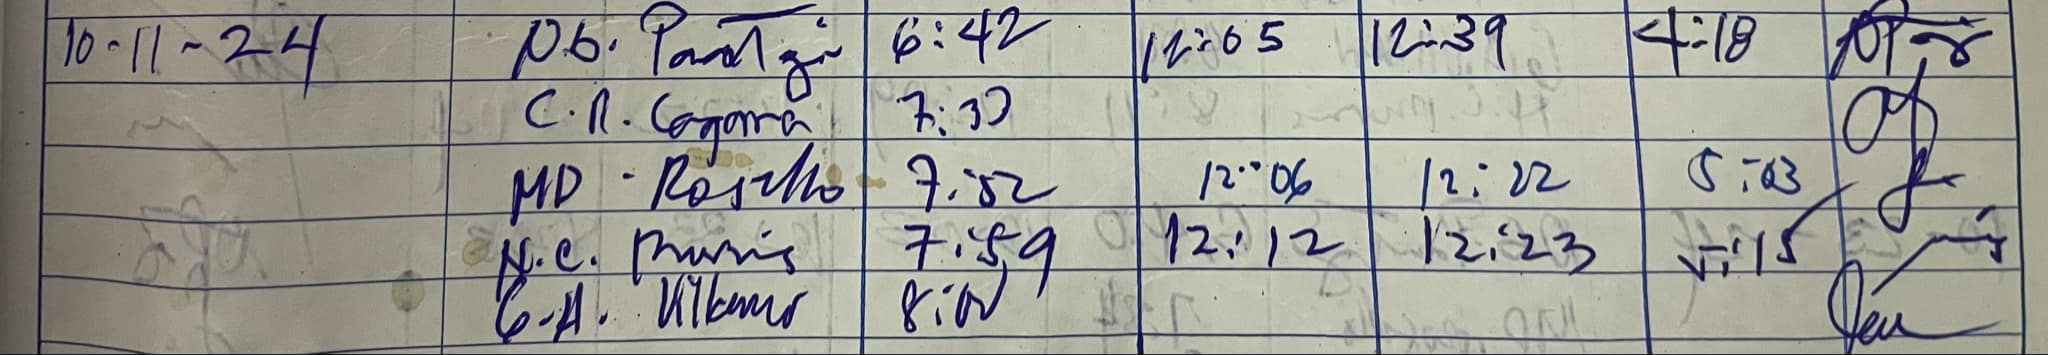 10-11-24 N.b. 6:42 12:05 12:39 4:18
C.R. Cagara 7:30
MD - Rosello 7:52 12:06 12:22 5:03
N.C. Munis 7:59 12:12 12:23 5:15
G.A. 8:00